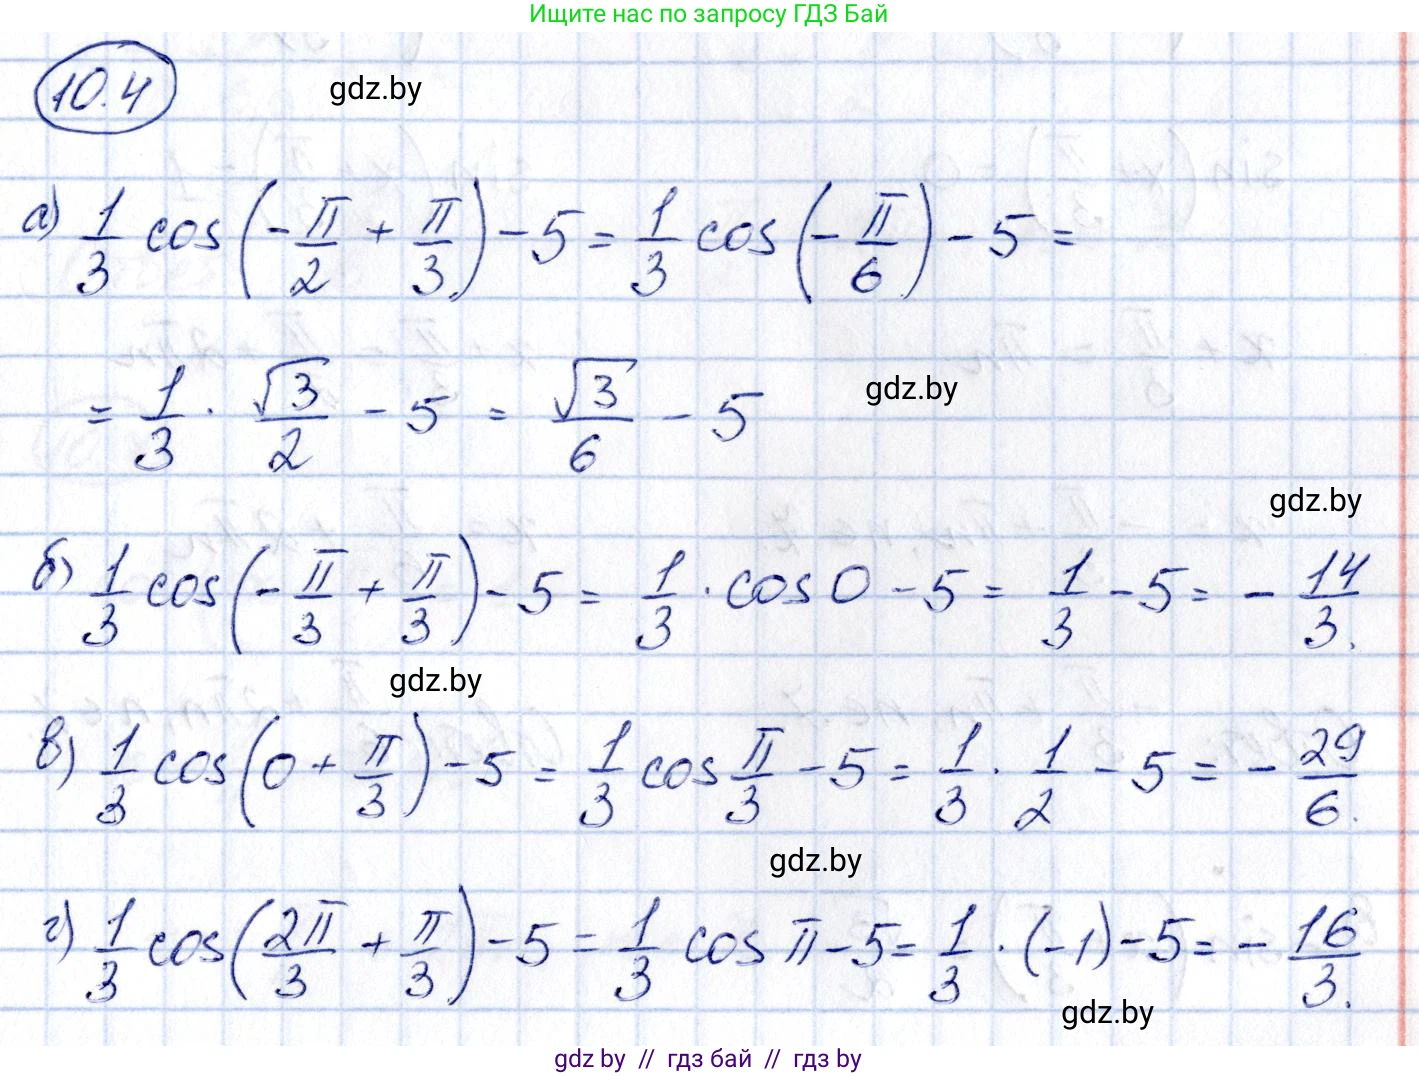 Ищите нас по запросу ГДЗ Бай
10.4
gdz.by
а) 1/3 cos(-π/2 + π/3) - 5 = 1/3 cos(-π/6) - 5 =
= 1/3 · √3/2 - 5 = √3/6 - 5
gdz.by
gdz.by
б) 1/3 cos(-π/3 + π/3) - 5 = 1/3 · cos 0 - 5 = 1/3 - 5 = - 14/3.
gdz.by
в) 1/3 cos(0 + π/3) - 5 = 1/3 cos π/3 - 5 = 1/3 · 1/2 - 5 = - 29/6.
gdz.by
г) 1/3 cos(2π/3 + π/3) - 5 = 1/3 cos π - 5 = 1/3 · (-1) - 5 = - 16/3.
gdz.by
gdz by // гдз бай // гдз by